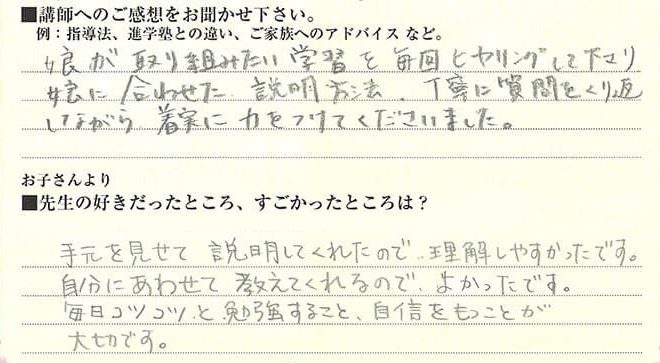 ■講師へのご感想をお聞かせ下さい。
例：指導法、進学塾との違い、ご家族へのアドバイス など。
娘が 取り組みたい 学習を 毎回ヒヤリングして下さり
娘に 合わせた 説明方法、丁寧に質問をくり返
しながら 着実に 力をつけてくださいました。
お子さんより
■先生の好きだったところ、すごかったところは？
手元を見せて 説明してくれたので、理解しやすかったです。
自分にあわせて 教えてくれるので、よかったです。
毎日コツコツと勉強すること、自信をもつことが
大切です。